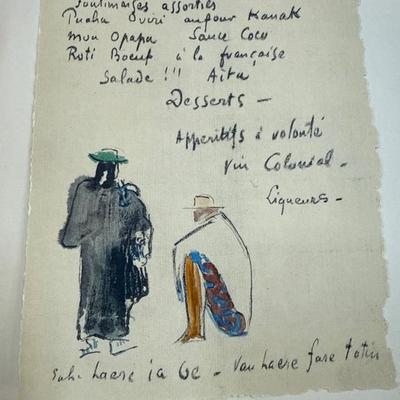 assorties
Puaha Oviri au four Kanak
Moa Opapa Sauce Coco
Roti Boeuf à la française
Salade !!! Aita
Desserts —
Apperitifs à volonté
Vin Colonial —
Liqueurs —
haere ia oe — Vau haere fare